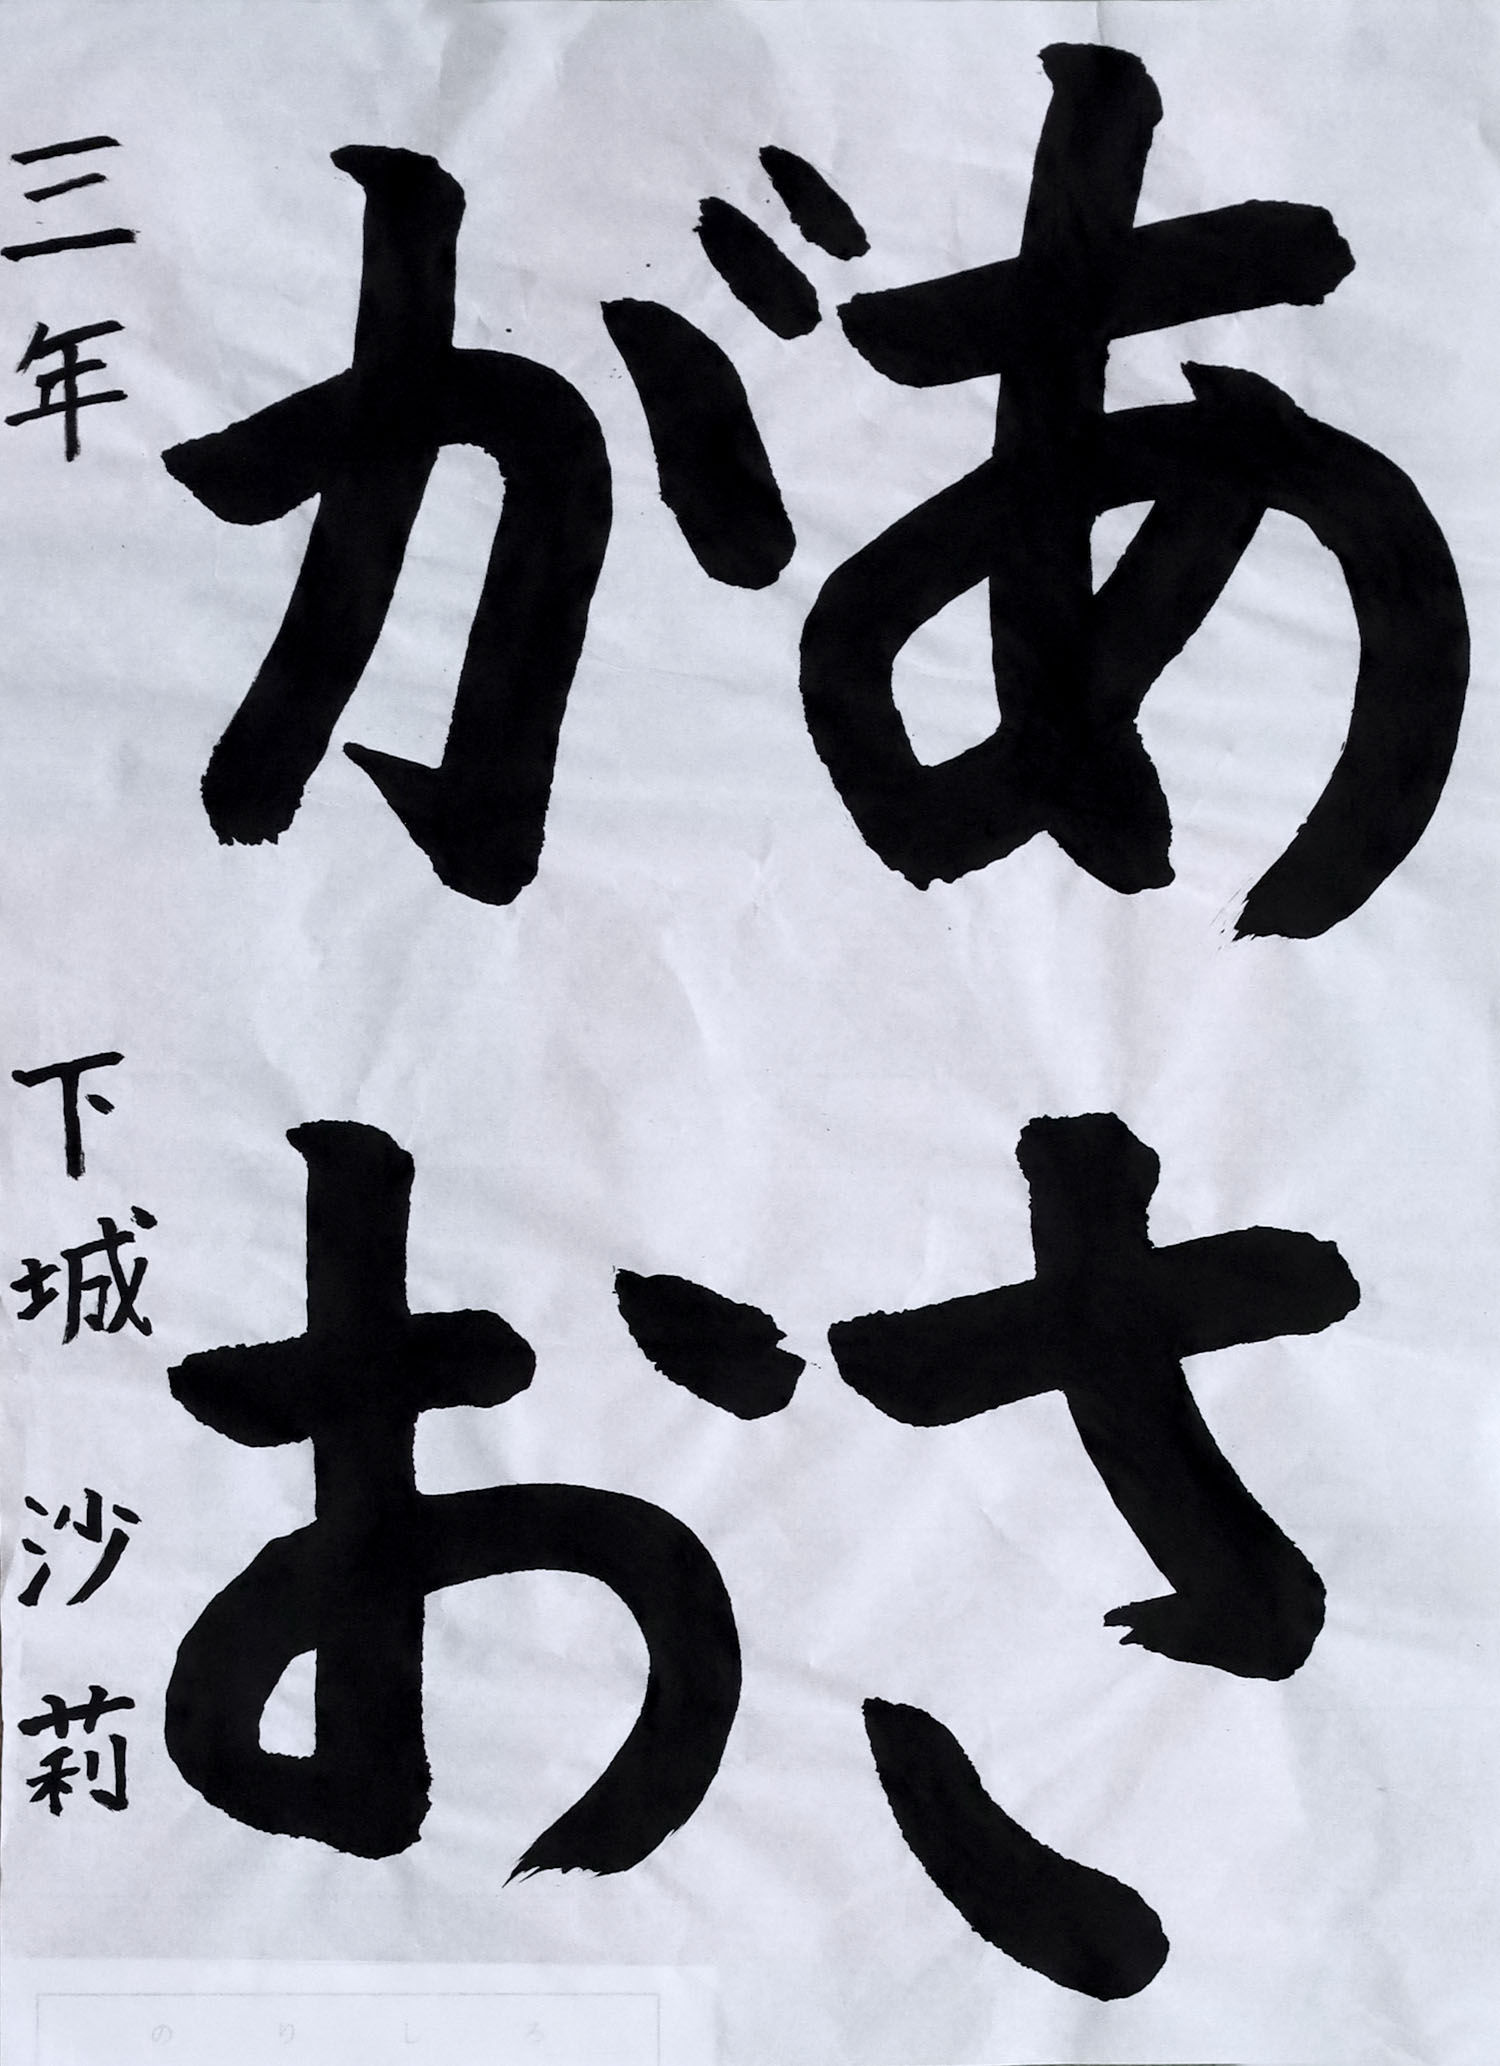 あさ
がお
三年 下城 沙莉
のりしろ